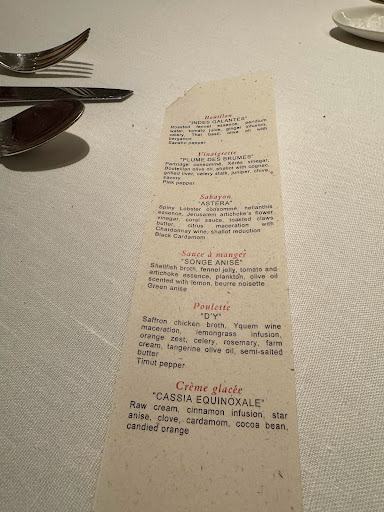 Bouillon
"INDES GALANTES"
Roasted fennel essence, peridium
water, tomato juice, ginger infusion,
celery, Thai basil, olive oil with
bergamot
Sansho pepper
Vinaigrette
"PLUME DES BRUMES"
Partridge consommé, Xérès vinegar,
Bouteillan olive oil, shallot with cognac,
grilled liver, celery stalk, juniper, chive,
savory
Pink pepper
Sabayon
"ASTERA"
Spiny Lobster consommé, helianthis
essence, Jerusalem artichoke's flower
vinegar, coral sauce, toasted claws
butter, citrus maceration with
Chardonnay wine, shallot reduction
Black Cardamom
Sauce à manger
"SONGE ANISÉ"
Shellfish broth, fennel jelly, tomato and
artichoke essence, plankton, olive oil
scented with lemon, beurre noisette
Green anise
Poulette
"D'Y"
Saffron chicken broth, Yquem wine
maceration, lemongrass infusion,
orange zest, celery, rosemary, farm
cream, tangerine olive oil, semi-salted
butter
Timut pepper
Crème glacée
"CASSIA EQUINOXALE"
Raw cream, cinnamon infusion, star
anise, clove, cardamom, cocoa bean,
candied orange